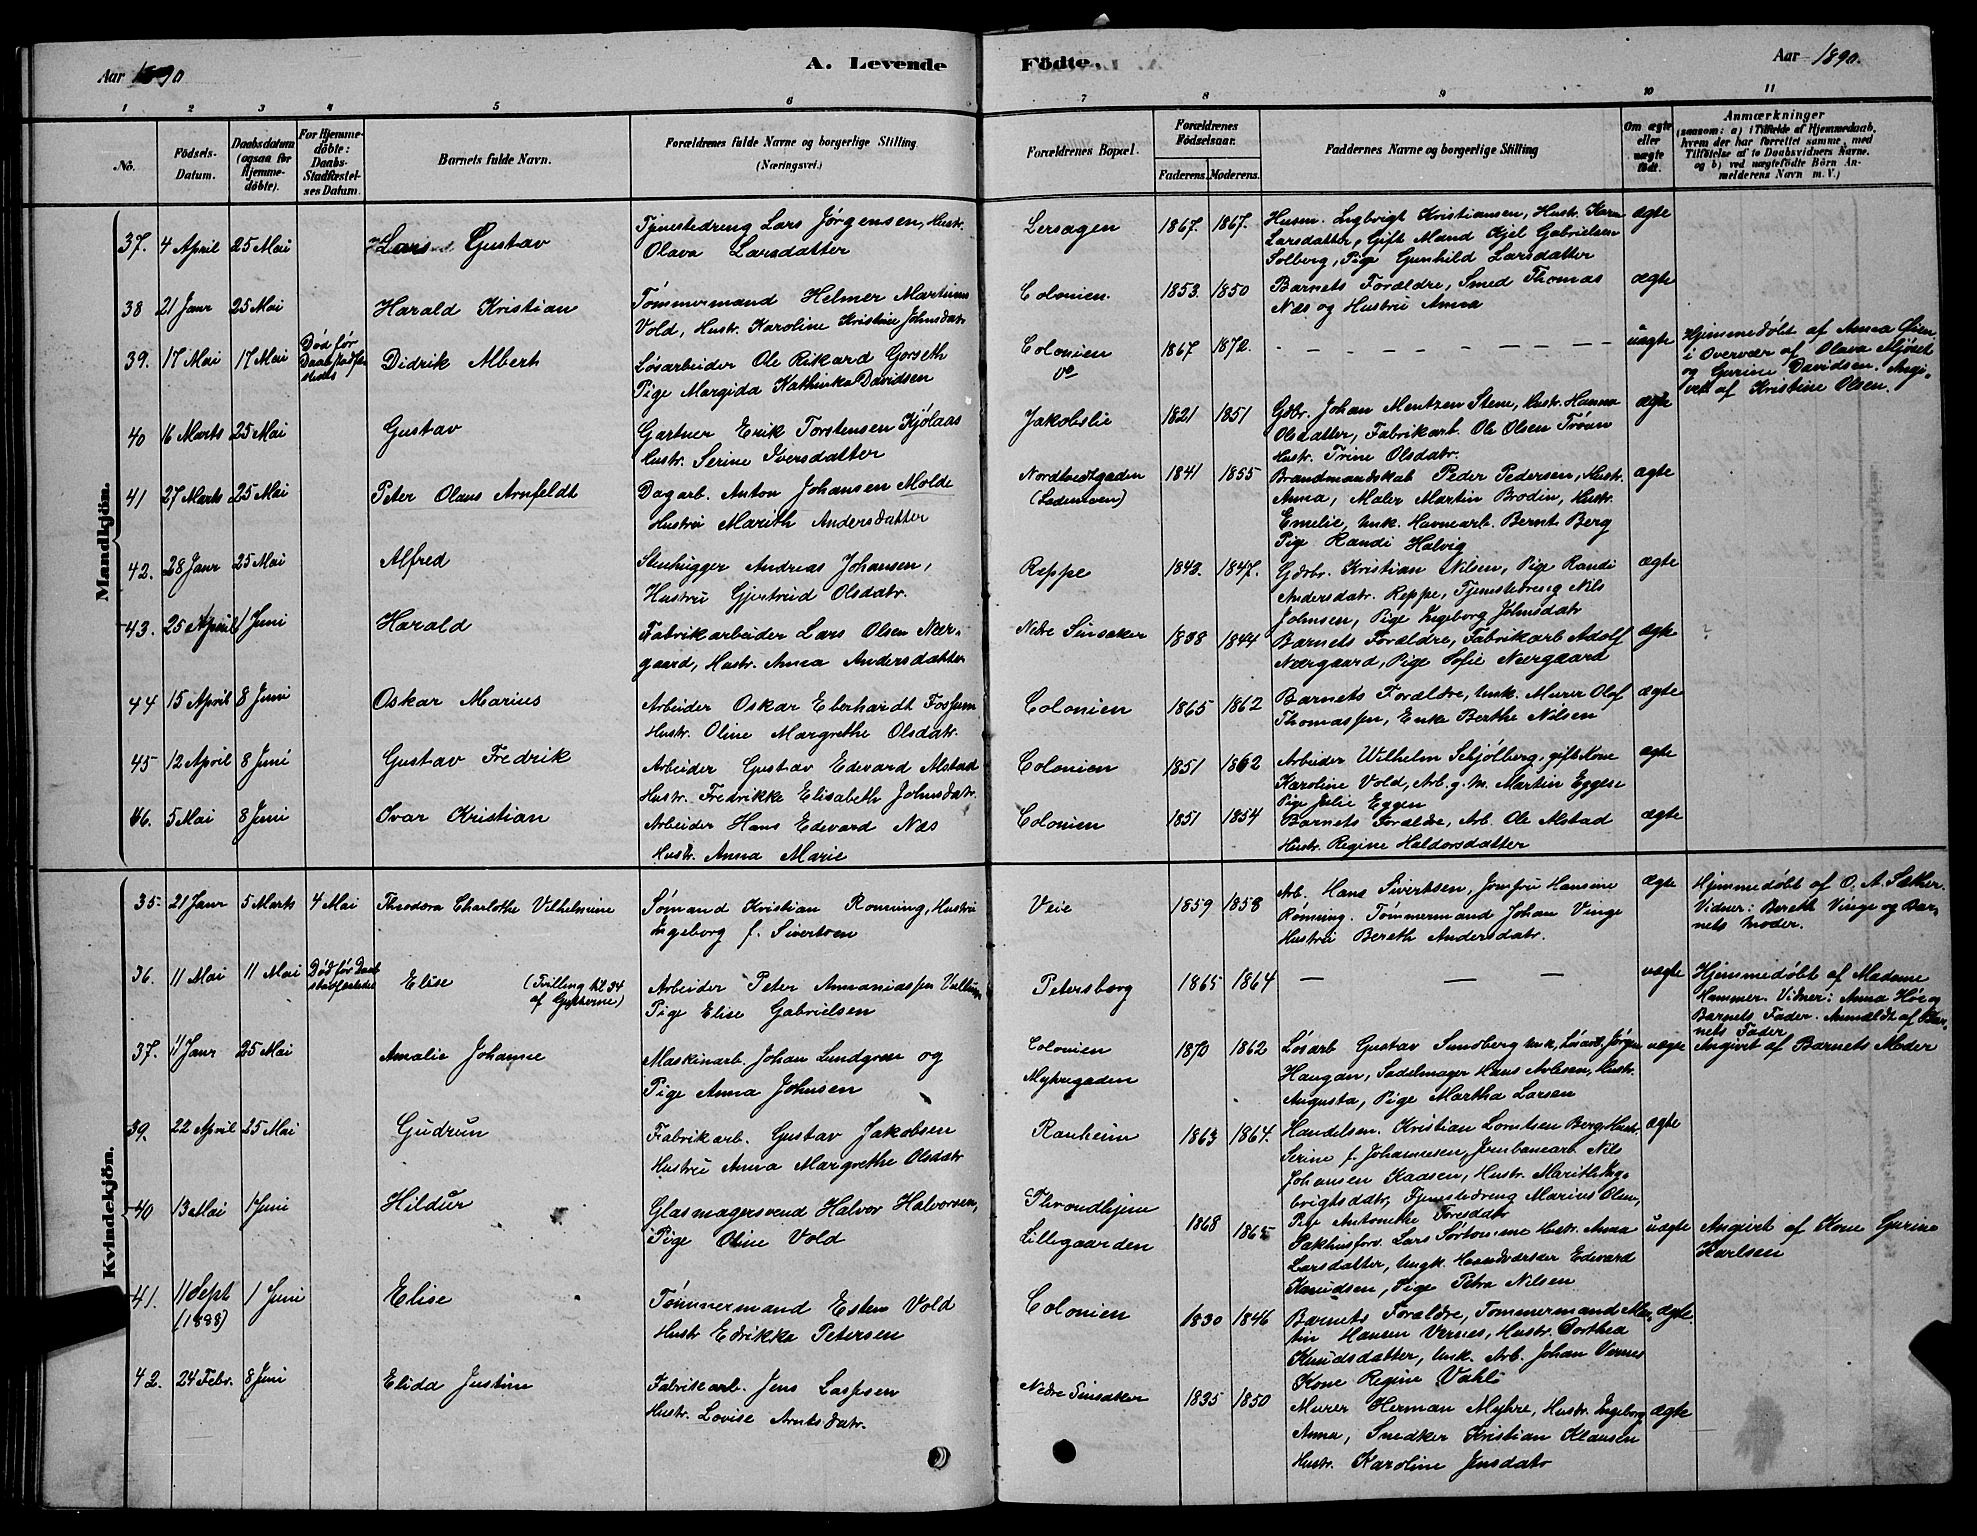 Aar 1890
A. Levende
Födte.
Aar 1890.
1 2 3 4 5 6 7 8 9 10 11
No.
Födsels-
Datum.
Daabsdatum
(ogsaa for
Hjemme-
döbte).
For Hjemme-
döbte:
Daabs-
Stadfæstel-
ses Datum.
Barnets fulde Navn.
Forældrenes fulde Navne og borgerlige Stilling
(Næringsvei.)
Forældrenes Bopæl.
Forældrenes
Födselsaar.
Faderens. Moderens.
Faddernes Navne og borgerlige Stilling
Om ægte
eller
uægte
födt.
Anmærkninger
(saasom: a) i Tilfælde af Hjemmedaab,
hvem der har forrettet samme, med
Tilföielse af to Daabsvidners Navne.
og b) ved uægtefödte Börn An-
melderens Navn m. V.)
Mandkjön.
37. 4 April 25 Mai Lars Gustav
Tjenestedreng Lars Jørgensen, Hustr.
Olava Larsdatter
Lersagen 1867. 1867.
Husm. Ingbrigt Kristiansen, Hustr. Karn
Larsdatter, Gift Mand Kjel Gabrielsen
Solberg, Pige Gunhild Larsdatter
ægte
38 21 Janr 25 Mai Harald Kristian
Tømmermand Helmer Martinus
Vold, Hustr. Karoline Kristine Johnsdatr
Colonien. 1853. 1850
Barnets Forældre, Smed Thomas
Næs og Hustru Anna
ægte
39. 17 Mai 17 Mai
Død før
Daabsstadfæ
stedes
Didrik Albert
Løsarbeider Ole Rikard Gorseth
Pige Margida Kathinka Davidsen
Colonien
1867 1872.
uægte
Hjemmedøbt af Anna Øien
i Overvær af Olava Mjøset
og Gurine Davidsen. Angi-
vet af Kristine Olsen.
40 16 Marts 25 Mai Gustav
Gartner Erik Torstensen Kjølaas
Hustr. Serine Iversdatter
Jakobslie 1821 1851
Gdbr. Johan Mentzen Stene, Hustr. Hanna
Olsdatter, Fabrikarb. Ole Olsen Trøan
Hustr. Trine Olsdatr.
ægte
41 27 Marts 25 Mai Peter Olaus Arnfeldt
Dagarb. Anton Johansen Molde
Hustru Marith Andersdatter
Nordtvedtgaden
(Lademoen)
1841 1855
Brandmandskab Peder Pedersen, Hustr.
Anna, Maler Martin Brodin, Hustr.
Emelie, Unk. Havnearb. Bernt Berg
Pige Randi Halvig
ægte
42. 28 Janr 25 Mai Alfred
Stenhugger Andreas Johansen,
Hustru Gjertrud Olsdatr.
Reppe 1843. 1847.
Gdbr. Kristian Nilsen, Pige Randi
Andersdatr. Reppe, Tjenestedreng Nils
Johnsen, Pige Ingeborg Johnsdatr
ægte
43. 25 April 1 Juni Harald
Fabrikarbeider Lars Olsen Nær-
gaard, Hustr. Anna Andersdatter
Nedre Sinsaker 1838 1844
Barnets Forældre, Fabrikarb Adolf
Nærgaard, Pige Sofie Nærgaard
ægte
44 15 April 8 Juni Oskar Marius
Arbeider Oskar Eberhardt Fossum
Hustr. Oline Margrethe Olsdatr.
Colonien 1865 1862
Barnets Forældre, Unk. Murer Olaf
Thomassen, Enke Berthe Nilsen
ægte
45 12 April 8 Juni Gustav Fredrik
Arbeider Gustav Edevard Alstad
Hustr. Fredrikke Elisabeth Johnsdatr.
Colonien 1851 1862
Arbeider Wilhelm Schjølberg, gift Kone
Karoline Vold, Arb. g. M. Martin Eggese
Pige Julie Eggen
ægte
46. 5 Mai 8 Juni Ivar Kristian
Arbeider Hans Edevard Næs
Hustr. Anna Marie
Colonien 1851 1854
Barnets Forældre, Arb. Ole Alstad
Hustr. Regine Haldorsdatter
ægte
Kvindekjön.
35. 21 Janr 5 Marts 4 Mai Theodora Charlotte Vilhelmine
Sømand Kristian Rønning, Hustru
Ingeborg f. Sivertsen
Veie 1859 1858
Arb. Hans Sivertsen, Jomfru Hansine
Rønning. Tømmermand Johan Vinge
Hustru Bereth Andersdatr.
ægte
Hjemmedøbt af O. A. Sæther
Vidner: Bereth Vinge og Bar-
nets Moder.
36. 11 Mai 11 Mai
Død før Daab
stadfæstedes
Elise (Tvilling til 34
af Guttene)
Arbeider Peter Annaniassen Vullum
Pige Elise Gabrielsen
Petersborg 1865 1864
uægte
Hjemmedøbt af Madame
Hammer. Vidner: Anna Høe og
Barnets Fader. Anmeldt af Bar-
nets Fader
37. 11 Janr 25 Mai Amalie Johanne
Maskinarb. Johan Lundgren og
Pige Anna Johnsen
Colonien
Myhregaden
1870 1862
Løsarb Gustav Sundberg Unk, Løsarb. Jørgen
Haugan, Sadelmager Hans Arlesen, Hustr.
Augusta, Pige Martha Larsen
uægte
Angivet af Barnets Moder
39. 22 April 25 Mai Gudrun
Fabrikarb. Gustav Jakobsen
Hustru Anna Margrethe Olsdatr
Ranheim 1863 1864.
Handelsm. Kristian Lorntsen Berg, Hustr.
Serine f. Johannesen, Jernbanearb Nils
Johansen Kaasen, Hustr. Marith Ing-
brigtsdatr, Tjenestedreng Marius Olsen,
Pige Antonette Toresdatr
ægte
40 13 Mai 1 Juni Hildur
Glasmagersvend Halvor Halvorsen,
Pige Oline Vold
Throndhjem
Lillegaarden
1868 1865
Pakhusforv. Lars Sørtømme Hustr. Anna
Larsdatter, Ungk. Haandværker Edevard
Knudsen, Pige Petra Nilsen
uægte
Angivet af Kone Gurine
Karlsen
41. 11 Sept
(1888)
1 Juni Elise
Tømmermand Esten Vold
Hustr Edrikke Petersen
Colonien 1830 1846
Barnets Forældre, Tømmermand Mar-
tin Hansen Vernes, Hustr. Dorthea
Knudsdatter, Unk. Arb. Johan Vernes
Kone Regine Vahli
ægte.
42. 24 Febr. 8 Juni Elida Justine
Fabrikarb. Jens Lassen
Hustr. Lovise Arntsdatr.
Nedre Sinsaker 1835 1850
Murer Herman Myhre, Hustr. Ingeborg
Anna, Snedker Kristian Klausen
Hustr. Karoline Jensdatr
ægte